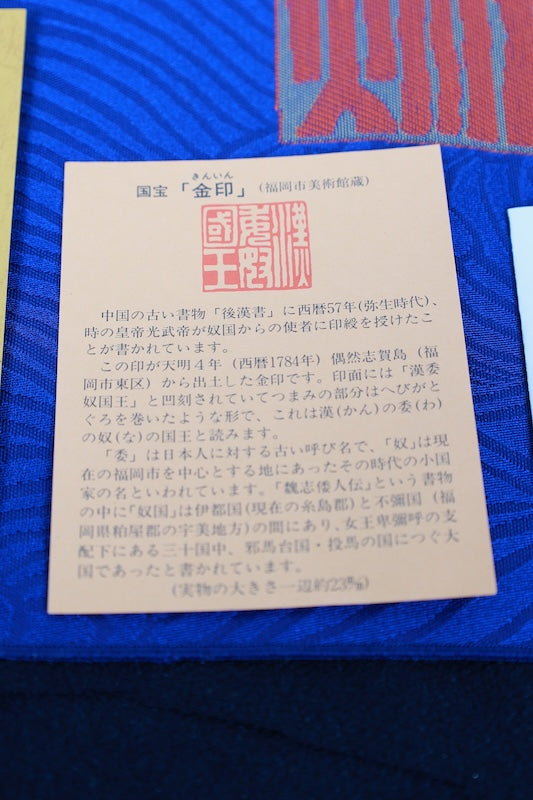 きんいん
国宝「金印」(福岡市美術館蔵)
漢委奴國王
中国の古い書物「後漢書」に西暦57年(弥生時代)、
時の皇帝光武帝が奴国からの使者に印綬を授けたこ
とが書かれています。
この印が天明4年(西暦1784年)偶然志賀島(福
岡市東区)から出土した金印です。印面には「漢委
奴国王」と凹刻されていてつまみの部分はへびがと
ぐろを巻いたような形で、これは漢(かん)の委(わ)
の奴(な)の国王と読みます。
「委」は日本人に対する古い呼び名で、「奴」は現
在の福岡市を中心とする地にあったその時代の小国
家の名といわれています。「魏志倭人伝」という書物
の中に「奴国」は伊都国(現在の糸島郡)と不彌国(福
岡県粕屋郡の宇美地方)の間にあり、女王卑彌呼の支
配下にある三十国中、邪馬台国・投馬の国につぐ大
国であったと書かれています。
(実物の大きさ一辺約23㎜)